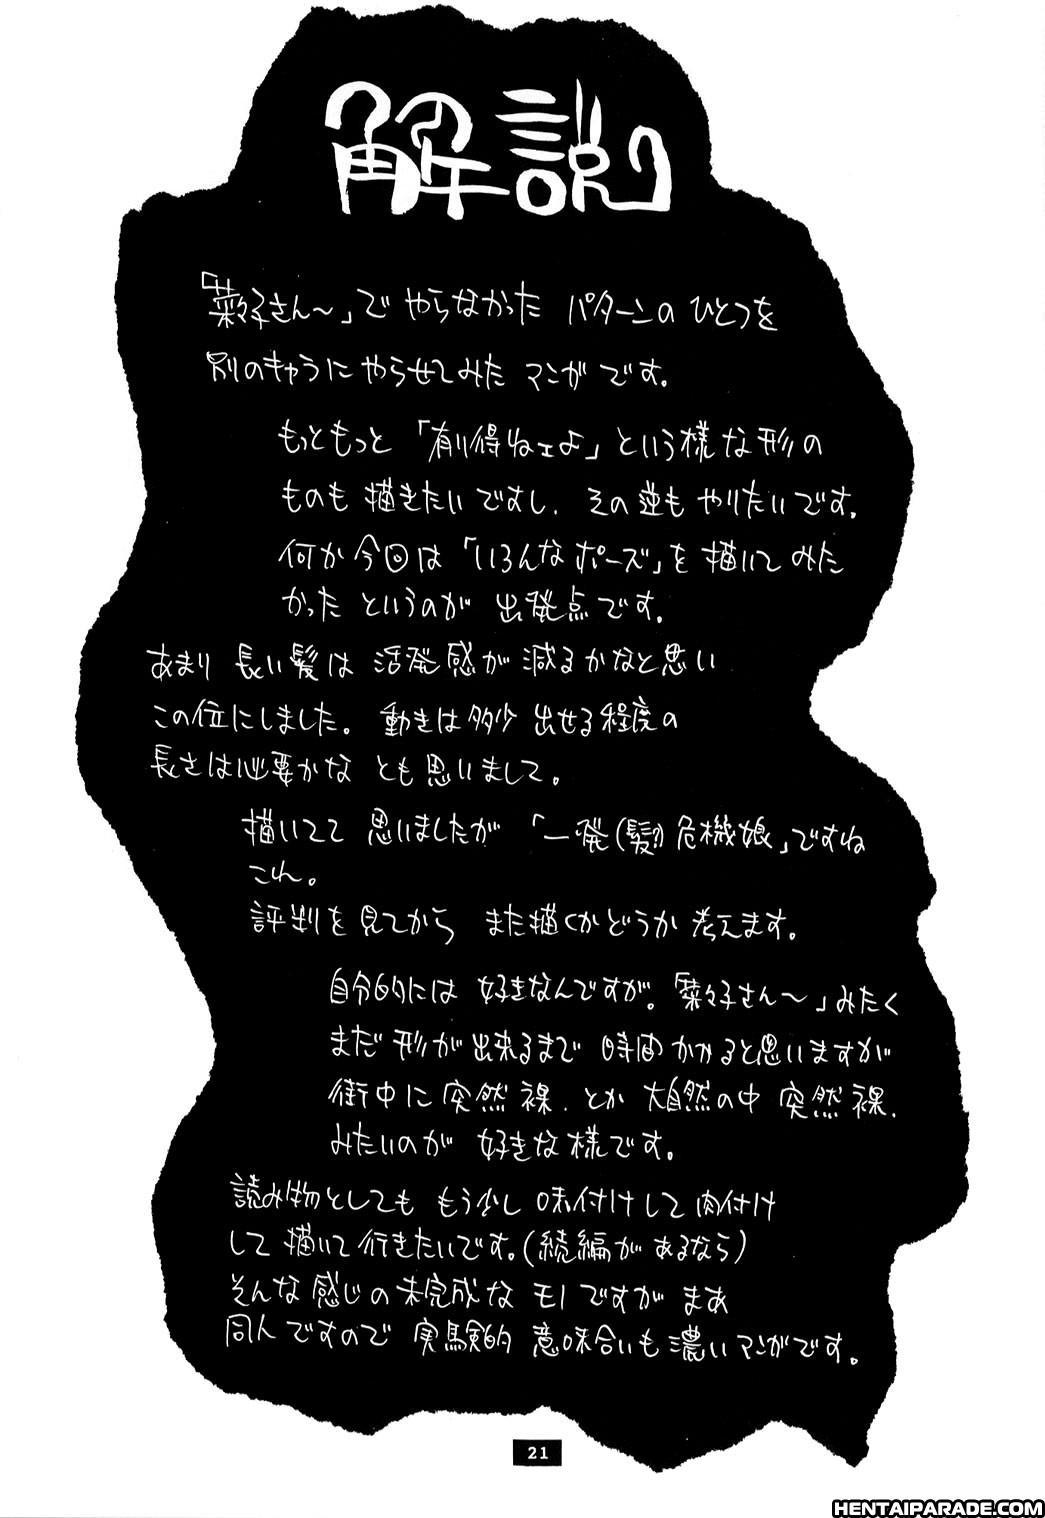 解説
「菜々子さん〜」で やらなかった パターンの ひとつを
別のキャラに やらせてみた マンガです。
もっともっと 「有り得ねェよ」という様な形の
ものも 描きたいですし、その逆も やりたいです。
何か今回は「いろんなポーズ」を 描いて みた
かった というのが 出発点です。
あまり 長い髪は 活発感が 減るかなと思い
この位にしました。 動きは多少 出せる程度の
長さは必要かな とも 思いまして。
描いてて 思いましたが 「一発(髪)危機娘」ですね
これ。
評判を見てから また描くかどうか 考えます。
自分的には 好きなんですが。「菜々子さん〜」みたく
まだ 形が出来るまで 時間かかると思いますが
街中に 突然 裸、とか 大自然の中 突然 裸、
みたいのが 好きな様です。
読み物としても もう少し 味付けして 肉付け
して 描いて 行きたいです。(続編が あるなら)
そんな 感じの 未完成な モノですが まあ
同人ですので 実験的 意味合いも 濃い マンガです。
21
HENTAIPARADE.COM